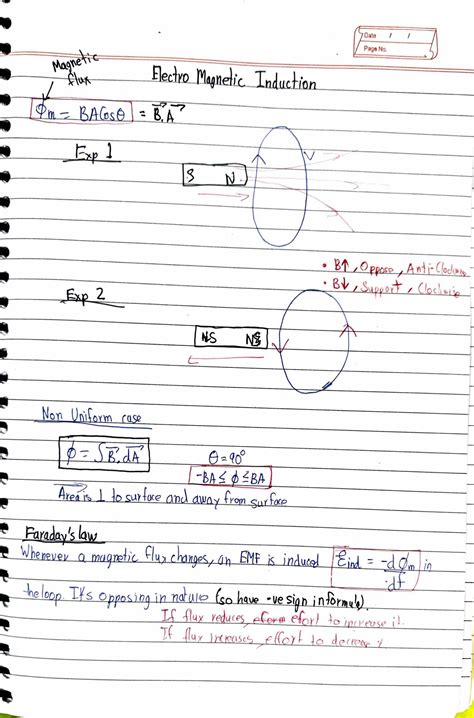 Date / /
Page No.
Magnetic flux
Electro Magnetic Induction
Φm = BACosθ = B⃗.A⃗
Exp 1
S N
• B↑, Oppose, Anti-Clockwise
• B↓, Support, Clockwise
Exp 2
NS
Non Uniform case
ϕ = ∫B⃗.dA⃗
θ=90°
-BA ≤ ϕ ≤ BA
Area is ⊥ to surface and away from surface
Faraday's law
Whenever a magnetic flux changes, an EMF is induced Ɛind = -dϕm/dt in
the loop. It's opposing in nature (so have -ve sign in formula).
If flux reduces, effort to increase it.
If flux increases, effort to decrease